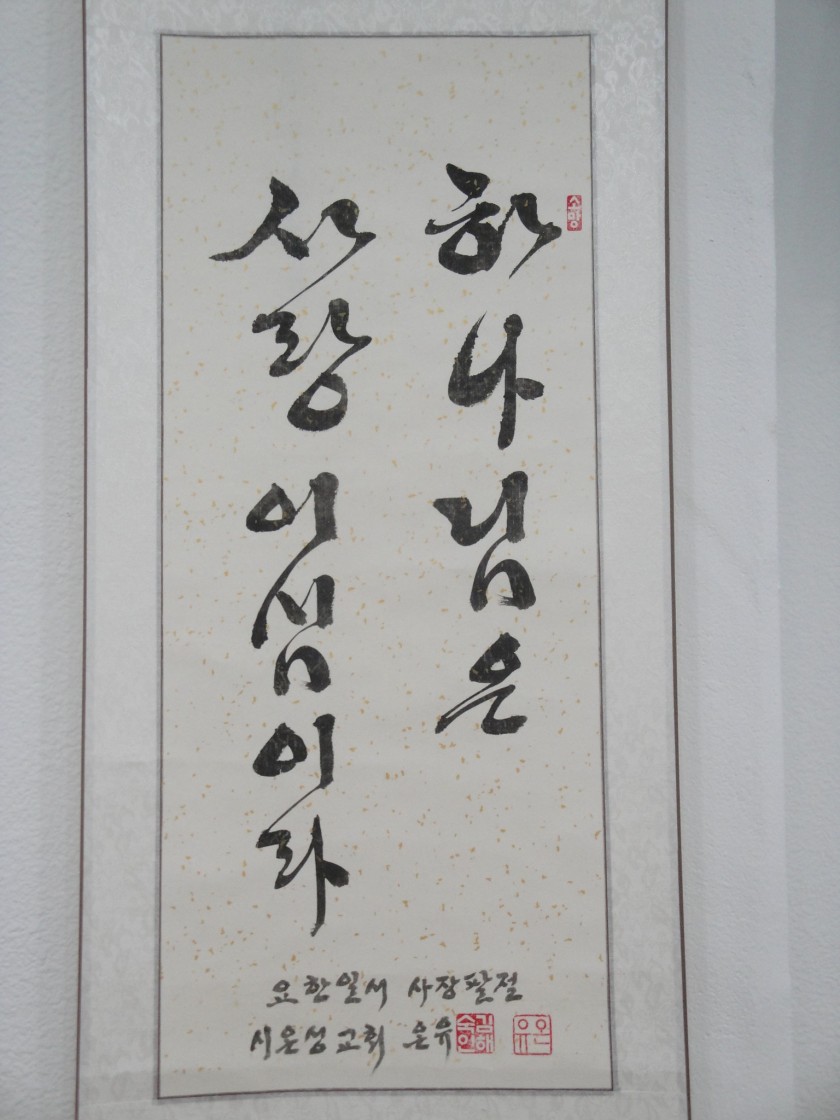 하나님은
사랑이심이라
소망
요한일서 사장팔절
시온성교회 은유
김해
숙연
은유